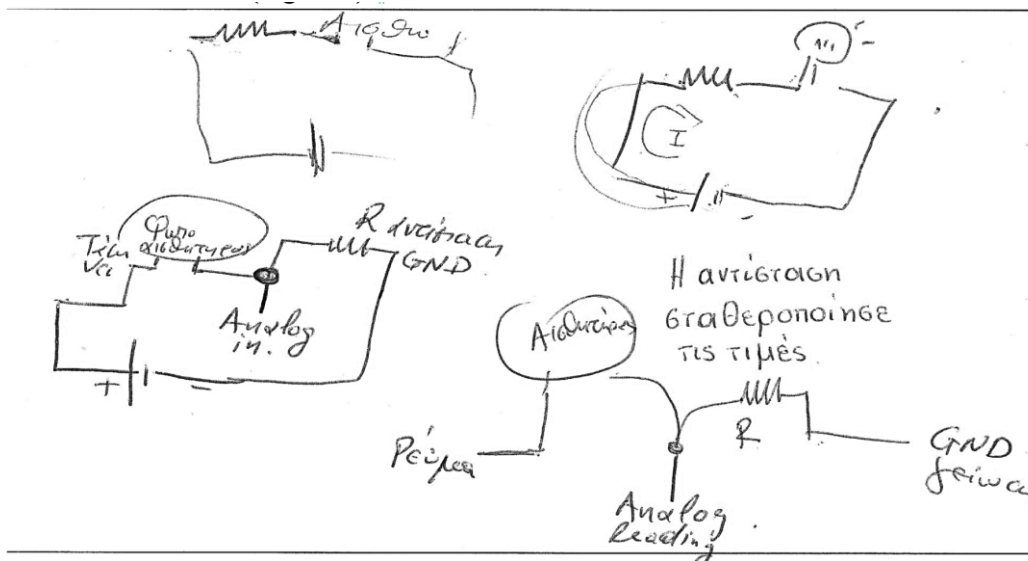 Αισθω
I
+
-
Φωτο
αισθητηρας
Τάση
Vcc
R αντίσταση
GND
Analog
in.
+
-
Η αντίσταση
σταθεροποίησε
τις τιμές.
Αισθητήρας
Ρεύμα
R
GND
γείωση
Analog
Reading